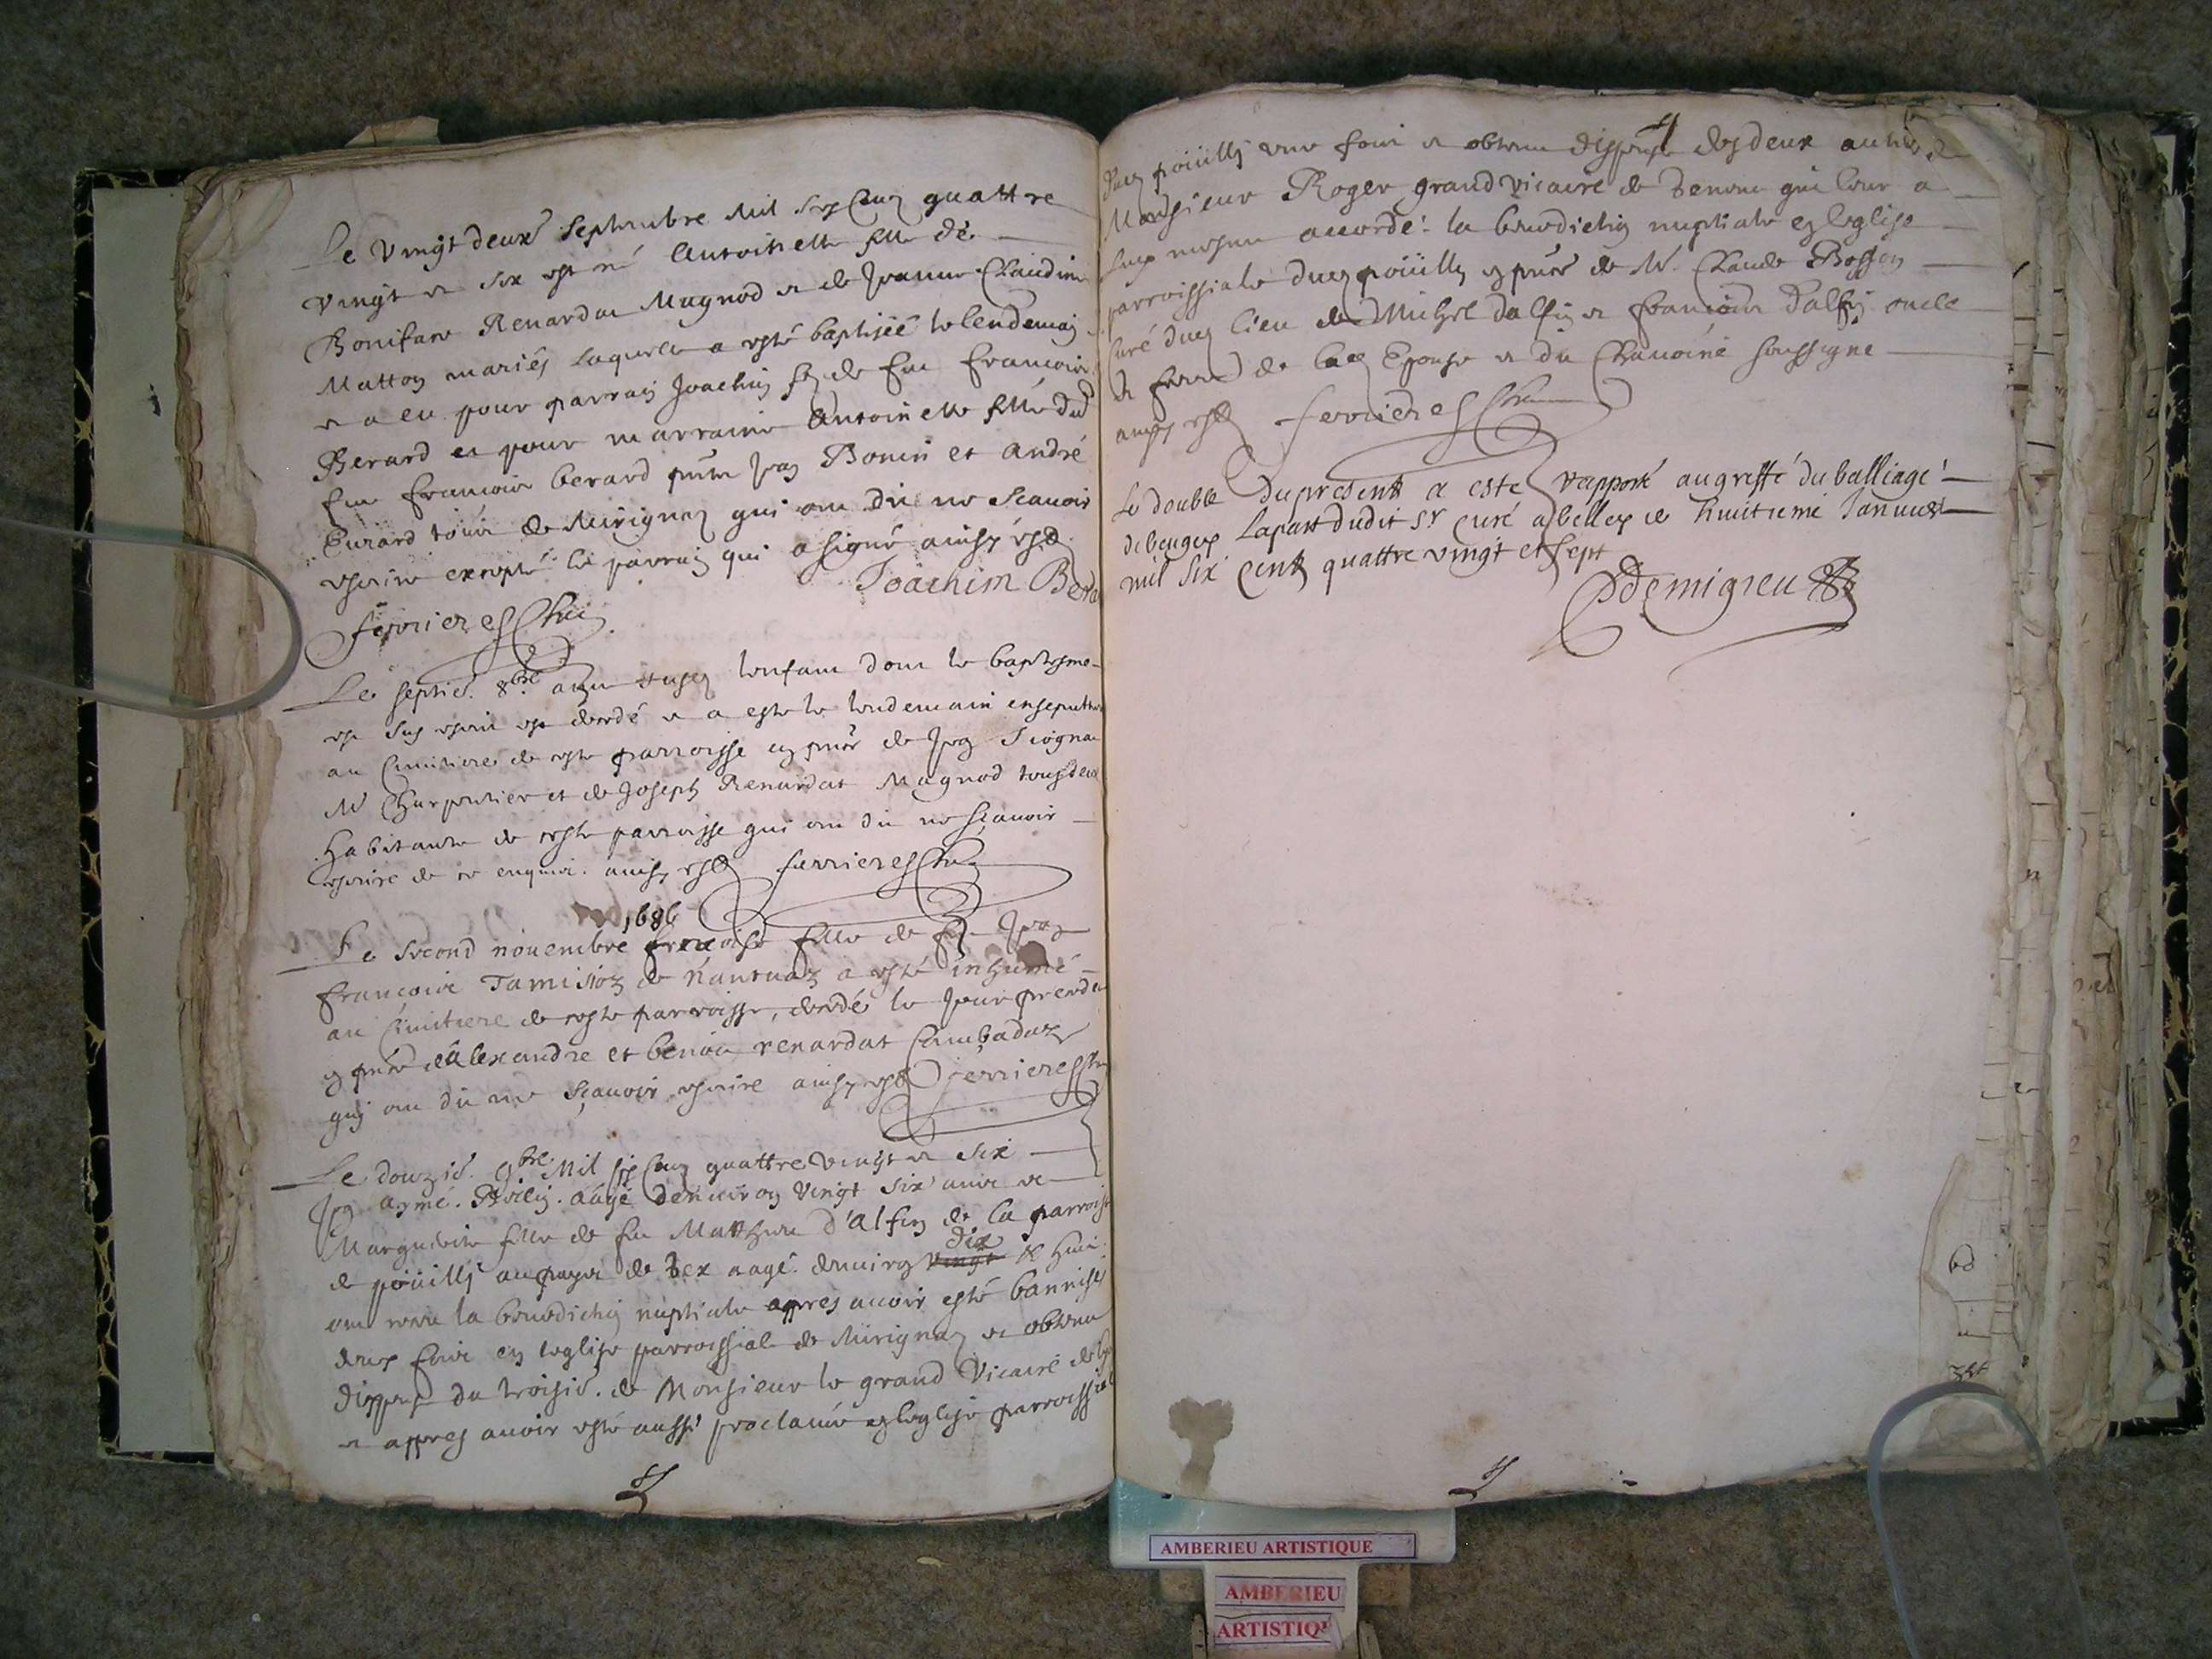 Le vingt deux septembre mil six cens quattre
vingt et six est né Antoinette fille de
Boniface Renardat Magnod et de Jeanne Claudine
Matton mariés laquelle a esté baptisée le lendemain
et a eu pour parrain Joachin fils de feu François
Berard et pour marraine Antoinette fille dud
feu François berard Jean Bonin et André
Evrard tous de Mirignaz qui ont dit ne scavoir
escrire excepté le parrain qui a signé ainsy est
Joachim Bera
ferrieres
Le septie. 8bre an susd lenfant dont le baptesme
est sus escrit est decedé et a este le lendemain ensepulture
au cimitiere de ceste parroisse en de Jean
Me Charpentier et de Joseph Renardat Magnod tous deux
habitants de ceste parroisse qui ont dit ne sçavoir
escrire de ce enquis. ainsy est ferrieres
1686
Le second novembre françoise fille de feu Jean
françois Tamision de Nantuaz a esté inhumé
au cimitiere de ceste parroisse, decedé le jour
d'alexandre et benoit renardat Cambadaz
qui ont dit ne sçavoir escrire ainsy est ferrieres
Le douzie. 9bre mil six cens quattre vingt et six
Jean aymé. aagé denviron vingt six ans et
Marguerite fille de feu Matthieu d'Alfin de la parroisse
dix
de poüilli au pays de Gex aagé. denviron vingt & huit
ont receu la benediction nuptiale appres avoir esté bannisés
deux fois en leglise parroissial de Mirignaz et obtenu
dispense du troisie. de Monsieur le grand Vicaire de
et appres avoir esté aussi proclamé en leglise parroissial
dud poüilli une fois et obtenu dispense des deux autres de
Monsieur Roger grand vicaire de Geneve qui leur a
accordé la benediction nuptiale en leglise
parroissiale dud poüilly en de M. Claude Bosson
curé dud lieu de Michel dalfin et françois Dalfin oncle
et frere de lad Epouse et du Chanoine soussigné
ainsy est ferrieres
Le double du present a este rapporé au greffe du balliage
de beugey lapart dudit Sr curé a belley le huitieme Januier
mil six cents quattre vingt et sept
Demigieu
AMBERIEU ARTISTIQUE
AMBERIEU
ARTISTIQU